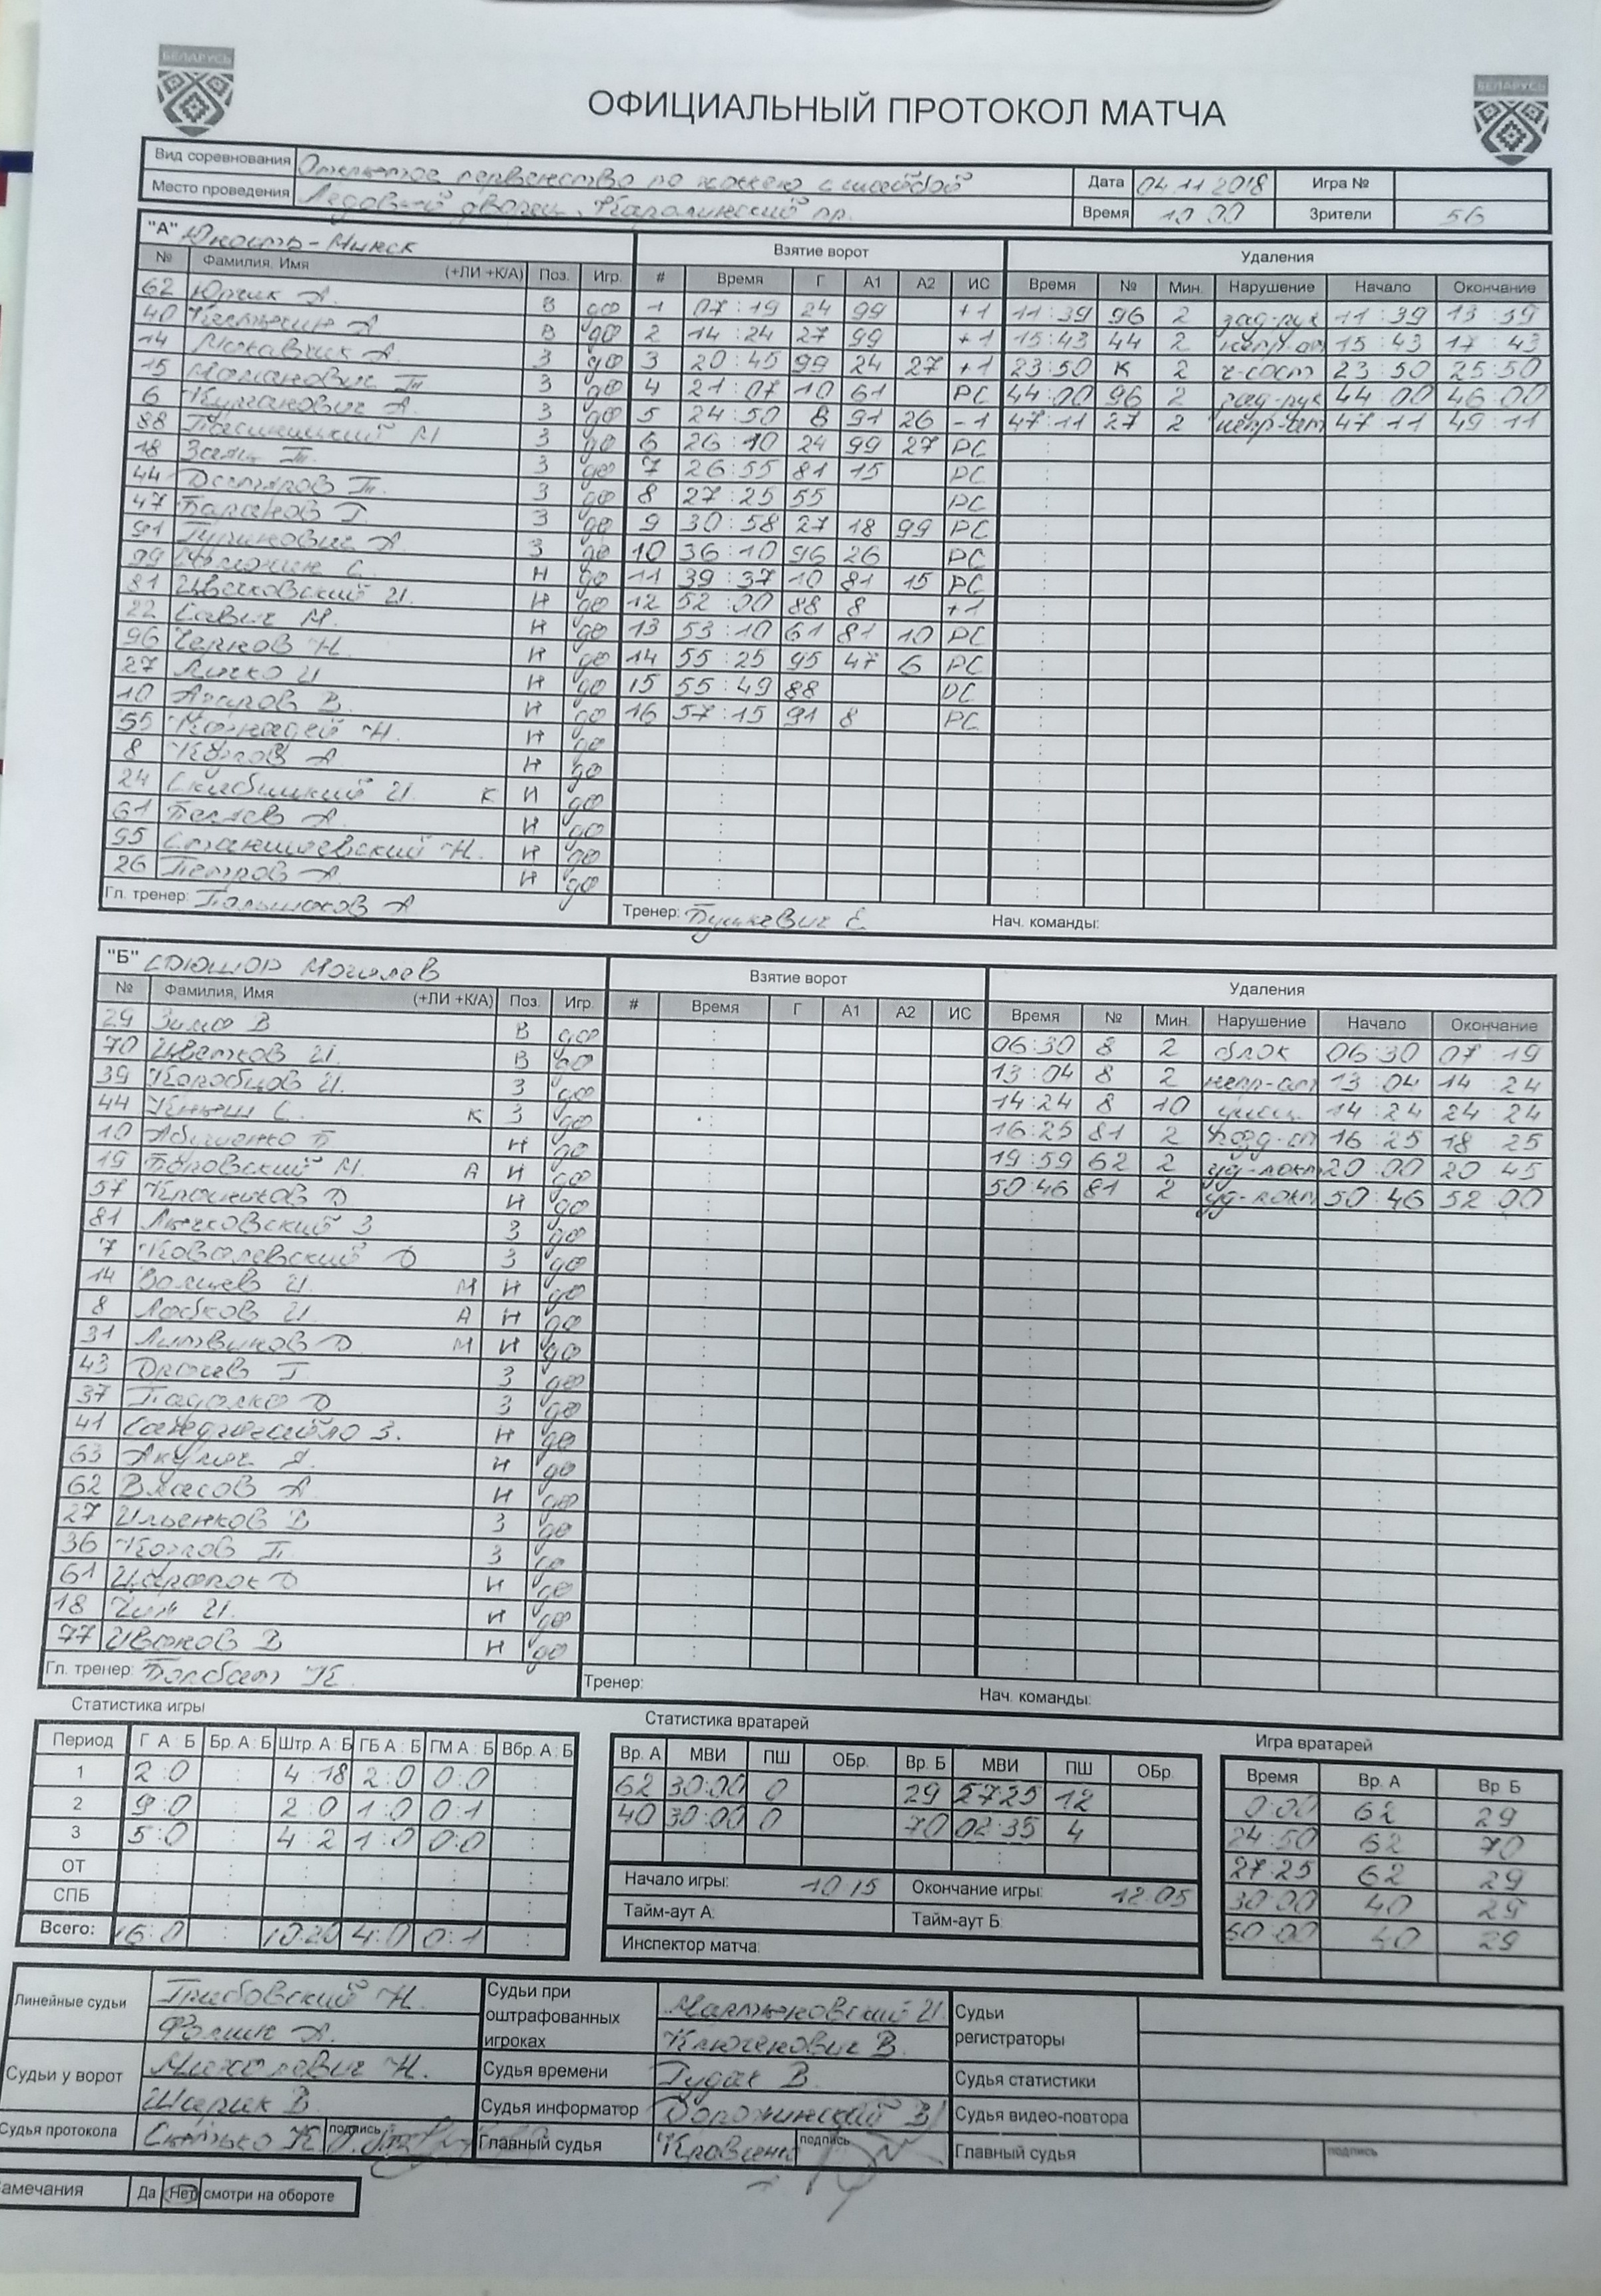 БЕЛАРУСЬ
БЕЛАРУСЬ
ОФИЦИАЛЬНЫЙ ПРОТОКОЛ МАТЧА
Вид соревнования Открытое первенство по хоккею с шайбой Дата 04 11 2018 Игра №
Место проведения Ледовый дворец, пр. Время 10 00 Зрители 56
"А" Юность-Минск Взятие ворот Удаления
№ Фамилия, Имя (+ЛИ +К/А) Поз. Игр. # Время Г А1 А2 ИС Время № Мин. Нарушение Начало Окончание
62 Юрчик А. В да 1 07:19 24 99 +1 11:39 96 2 11:39 13:39
40 А В да 2 14:24 27 99 +1 15:43 44 2 непр-ат 15:43 17:43
14 А. З да 3 20:45 99 24 27 +1 23:50 К 2 ч-сост 23:50 25:50
15 З да 4 21:07 10 61 РС 44:00 96 2 44:00 46:00
6 Курганович А. З да 5 24:50 8 91 26 -1 47:11 27 2 непр-ат 47:11 49:11
88 З да 6 26:10 24 99 27 РС
18 Заяц З да 7 26:55 81 15 РС
44 З да 8 27:25 55 РС
47 Баранов Г. З да 9 30:58 27 18 99 РС
91 Гуринович А З да 10 36:10 96 26 РС
99 С. Н да 11 39:37 10 81 15 РС
81 И. Н да 12 52:00 88 8 +1
22 Савич М. Н да 13 53:10 61 81 10 РС
96 Чернов Н. Н да 14 55:25 95 47 6 РС
27 Личко И Н да 15 55:49 88 РС
10 Агапов В. Н да 16 57:15 91 8 РС
55 Н. Н да
8 Козлов А Н да
24 Скибицкий И. К Н да
61 Беляев А. Н да
95 Станишевский Н. Н да
26 Петров А. Н да
Гл. тренер: А Тренер: Бушкевич Е Нач. команды:
"Б" СДЮШОР Могилев Взятие ворот Удаления
№ Фамилия, Имя (+ЛИ +К/А) Поз. Игр. # Время Г А1 А2 ИС Время № Мин. Нарушение Начало Окончание
29 В В да 06:30 8 2 блок 06:30 07:19
70 Цветков И. В да 13:04 8 2 непр-ат 13:04 14:24
39 Коробцов И. З да 14:24 8 10 14:24 24:24
44 С. К З да 16:25 81 2 16:25 18 25
10 Н да 19:59 62 2 уд-локт 20:00 20 45
19 Боровский М. А Н да 50:46 81 2 уд-локт 50:46 52:00
57 Д Н да
81 З З да
7 Ковалевский Д З да
14 И. М Н да
8 Лобков И А Н да
31 Литвинов Д М Н да
43 Г З да
37 Д З да
41 З. Н да
63 Акулич Н да
62 Власов А Н да
27 Ильенков В З да
36 Козлов З да
61 Д Н да
18 Чиж И. Н да
77 Иванов В Н да
Гл. тренер: К. Тренер: Нач. команды:
Статистика игры Статистика вратарей Игра вратарей
Период Г А : Б Бр. А : Б Штр. А : Б ГБ А : Б ГМ А : Б Вбр. А : Б Вр. А МВИ ПШ ОБр. Вр. Б МВИ ПШ ОБр. Время Вр. А Вр. Б
1 2:0 4:18 2:0 0:0 62 30:00 0 29 57 25 12 0:00 62 29
2 9:0 2:0 1:0 0:1 40 30:00 0 70 02:35 4 24:50 62 70
3 5:0 4:2 1:0 0:0 27:25 62 29
ОТ Начало игры: 10 15 Окончание игры: 12.05 30:00 40 29
СПБ Тайм-аут А: Тайм-аут Б: 60:00 40 29
Всего: 16:0 10:20 4:0 0:1 Инспектор матча:
Линейные судьи Грабовский Н. Фомин А.
Судьи при оштрафованных игроках И. Ключенович В.
Судьи регистраторы
Судьи у ворот Михолевич Н. В.
Судья времени Гудак В. Судья статистики
Судья информатор Дорожинский В Судья видео-повтора
Судья протокола К подпись Главный судья подпись Главный судья подпись
Замечания Да Нет смотри на обороте